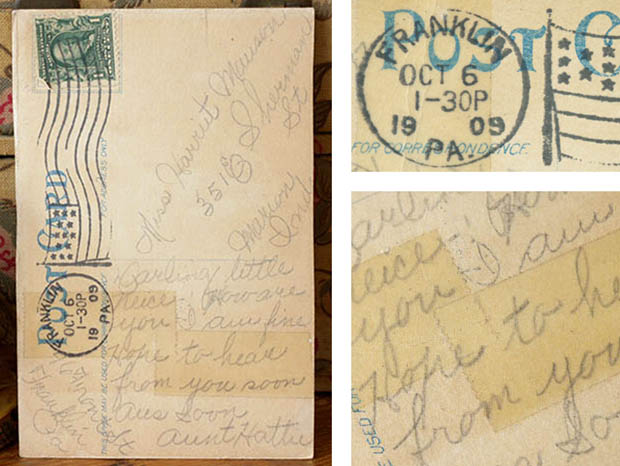 POST CARD
FOR ADDRESS ONLY
FRANKLIN
OCT 6
1-30P
19 09
PA.
Miss Harriet
Sherman
St
Marion
Ind
Darling little
neice. How are
you I am fine
Hope to hear
from you soon
Ans Soon
Aunt Hattie
Franklin
Pa
St
POST C
FRANKLIN
OCT 6
1-30P
19 09
PA.
FOR CORRESPONDENCE
Darlin
neice.
you I am
Hope to hea
from you
Soo
E USED FOR